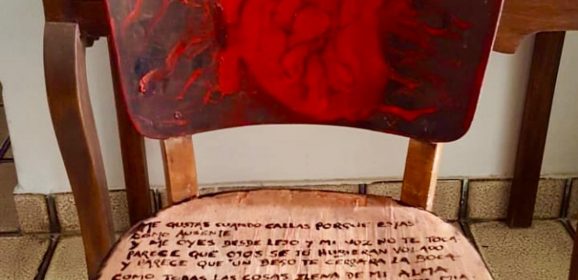 ME GUSTAS CUANDO CALLAS PORQUE ESTAS
COMO AUSENTE
Y ME OYES DESDE LEJO Y MI VOZ NO TE TOCA
PARECE QUE OJOS SE TE HUBIERAN VOLADO
Y PARECE QUE UN BESO TE CERRARA LA BOCA
COMO TODAS LAS COSAS LLENA DE MI ALMA